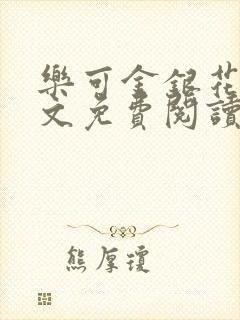 樂可金銀花
文免費閱讀
熊厚瓊